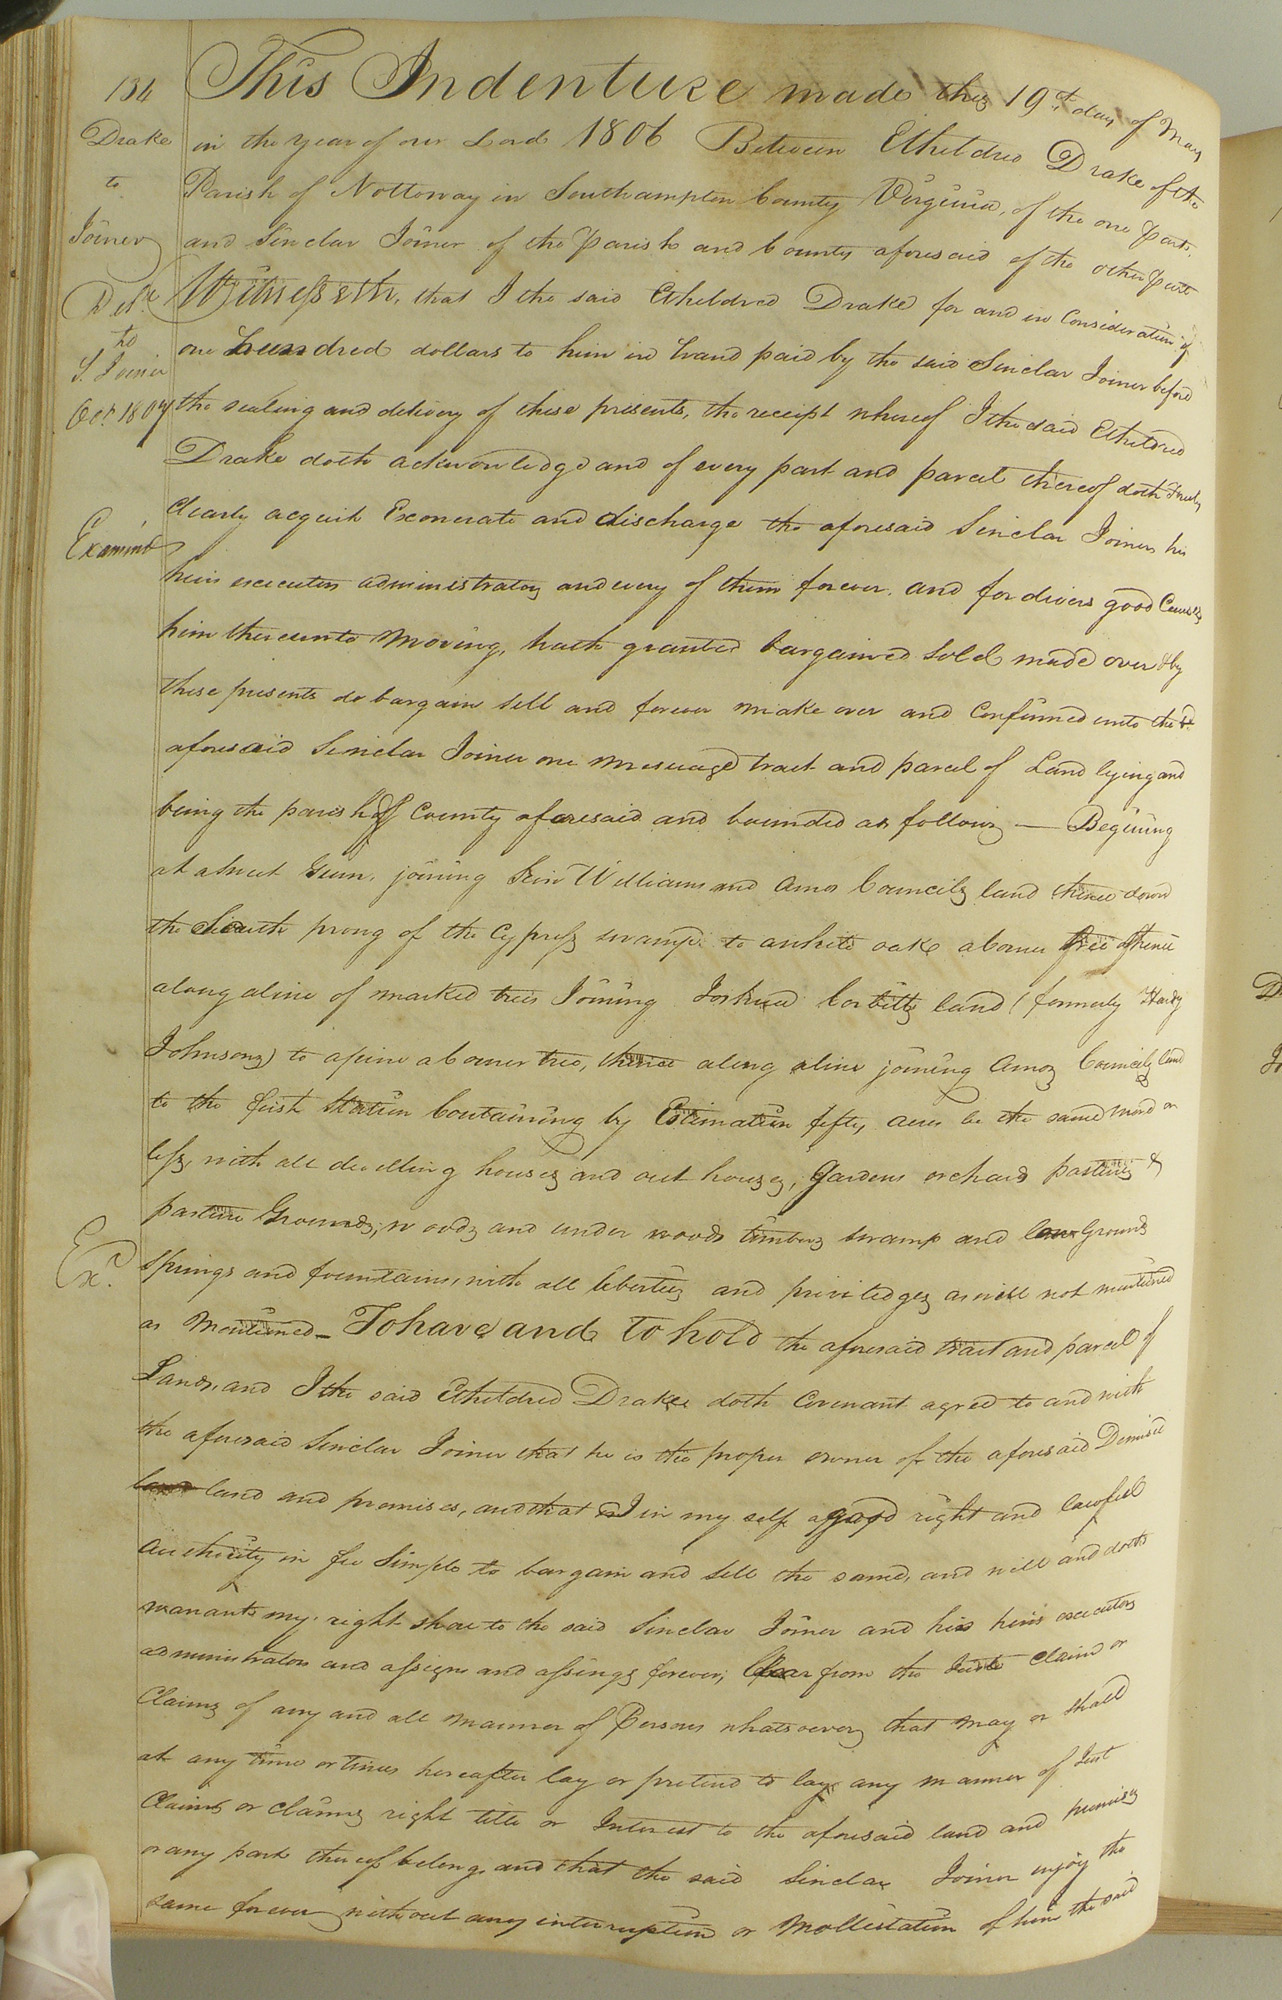 134
Drake
to
Joiner
Deld
to
S. Joiner
Oct 1807
Examind
Exd.
This Indenture made this 19th day of May
in the year of our Lord 1806 Between Etheldred Drake of the
Parish of Nottoway in Southampton County Virginia, of the one part,
and Sinclar Joiner of the parish and County aforesaid of the other part
Witnesseth, that I the said Etheldred Drake for and in Consideration of
one hundred dollars to him in hand paid by the said Sinclar Joiner before
the sealing and delivery of these presents, the receipt whereof I the said Etheldred
Drake doth acknowledge and of every part and parcel thereof doth freely
clearly acquit Exonerate and discharge the aforesaid Sinclar Joiner his
heirs executors administrators and every of them forever. and for divers good Causes
him thereunto moving, hath granted bargained sold made over & by
these presents do bargain sell and forever make over and Confirmed unto the
aforesaid Sinclar Joiner one messuage tract and parcel of Land lying and
being the parish & County aforesaid and bounded as follows — Begining
at a Sweet Gum, joining Williams and Amos Councils land thence down
the South prong of the Cypress swamp to a white oake a Corner tree thence
along a line of marked trees Joining Joshua Corbitts land (formerly Hardy
Johnsons) to a pine a Corner tree, thence along a line joining Amos Councils land
to the first Station Containing by Estimation fifty acres be the same more or
less, with all dwelling houses and out houses, gardens orchard pastures &
pasture Grounds, woods and under woods timbers swamp and low Grounds
springs and fountains, with all liberties and priviledges as well not mentioned
as Mentioned — To have and to hold the aforesaid tract and parcel of
Land, and I the said Etheldred Drake doth Covenant agree to and with
the aforesaid Sinclar Joiner that he is the proper owner of the aforesaid Demised
land and premises, and that I in my self a good right and lawful
authority in fee Simple to bargain and sell the same, and will and doth
warrant my right share to the said Sinclar Joiner and his heirs executors
administrators and assigns and assings forever, from the Juste claim or
Claims of any and all manner of Persons whatsoever, that may or shall
at any time or times hereafter lay or pretend to lay any manner of Just
Claims or claims right title or Interest to the aforesaid land and premises
or any part thereof belong, and that the said Sinclar Joiner enjoy the
same forever without any interruption or Mollistation of him the said